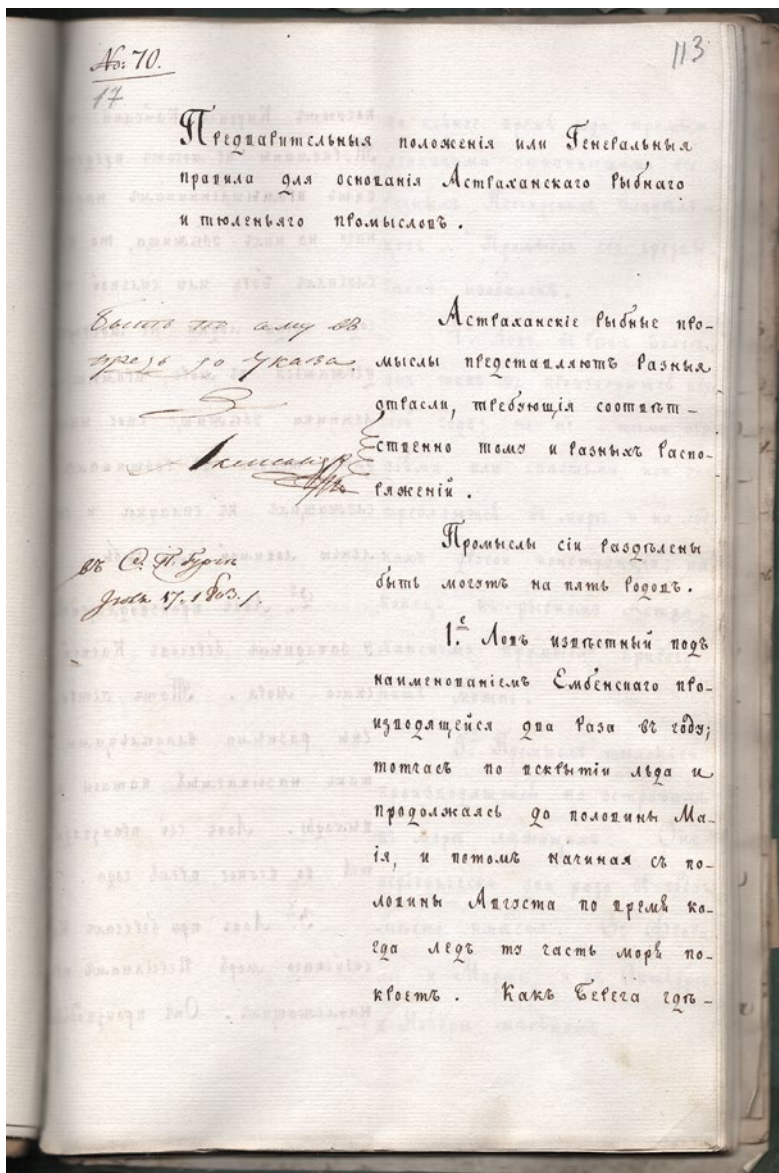 No: 70.
17
113
Предварительныя положенія или Генеральныя
правила для основанія Астраханскаго рыбнаго
и тюленьяго промысловъ.
Быть по сему въ
предь до указа
Александръ
въ С. П. Бурге
Іюля 17. 1803.
Астраханскіе рыбные про-
мыслы представляютъ разныя
отрасли, требующія соотвѣт-
ственно тому и разныхъ распо-
ряженій.
Промыслы сіи раздѣлены
быть могутъ на пять родовъ.
1.е Ловъ извѣстный подъ
наименованіемъ Ембенскаго про-
изводящейся два раза въ году;
тотчасъ по вскрытіи льда и
продолжаясь до половины Ма-
ія, и потомъ начиная съ по-
ловины Августа по время ко-
гда ледъ ту часть моря по-
кроетъ. Какъ Берега гдѣ-